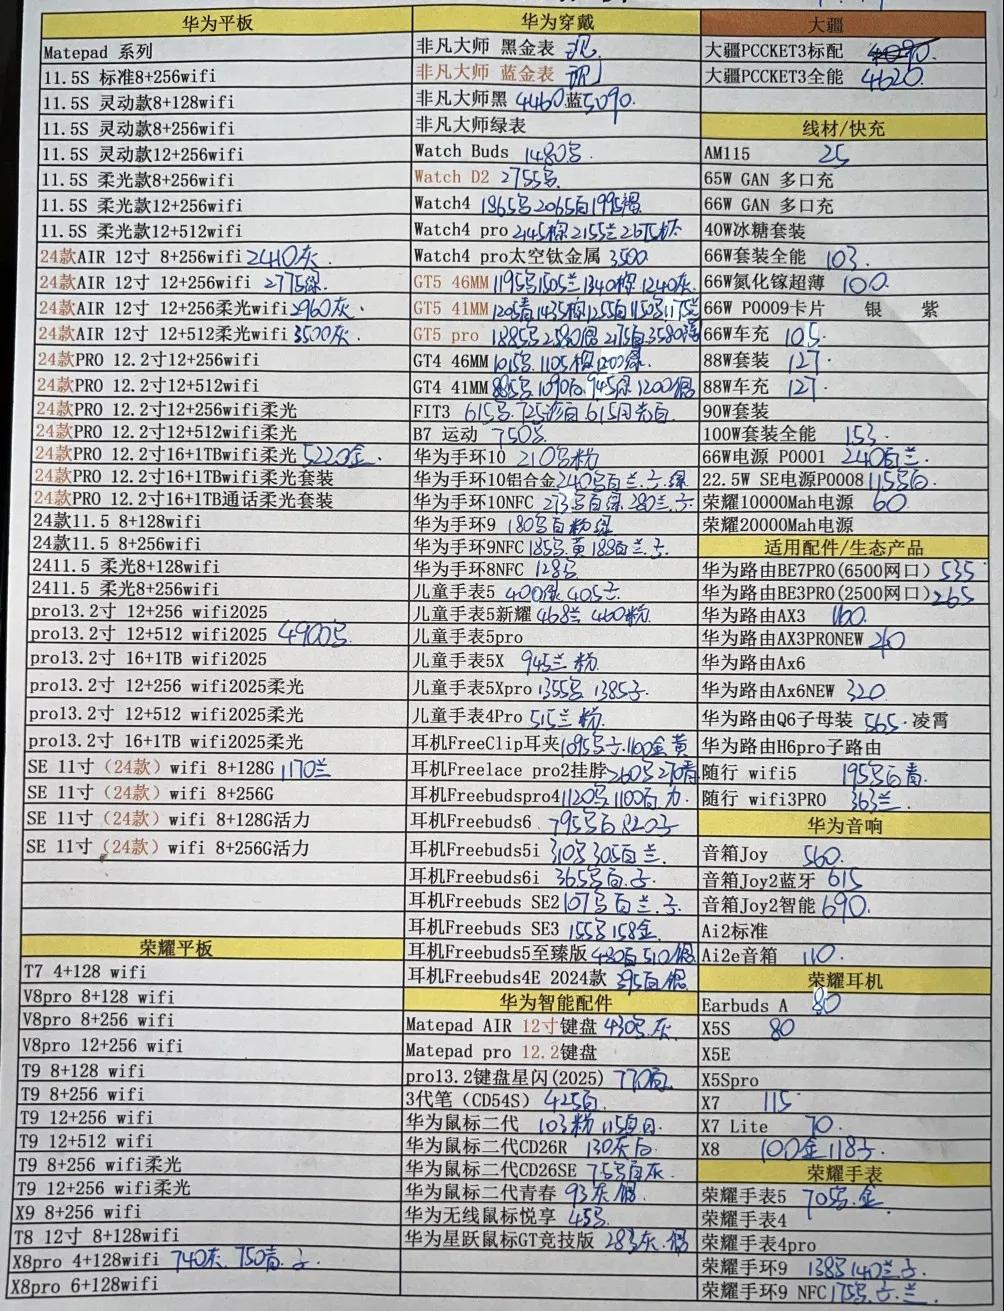 华为平板
Matepad 系列
11.5S 标准8+256wifi
11.5S 灵动款8+128wifi
11.5S 灵动款8+256wifi
11.5S 灵动款12+256wifi
11.5S 柔光款8+256wifi
11.5S 柔光款12+256wifi
11.5S 柔光款12+512wifi
24款AIR 12寸 8+256wifi 2410灰
24款AIR 12寸 12+256wifi 2775绿
24款AIR 12寸 12+256柔光wifi 2960灰
24款AIR 12寸 12+512柔光wifi 3500灰
24款PRO 12.2寸12+256wifi
24款PRO 12.2寸12+512wifi
24款PRO 12.2寸12+256wifi柔光
24款PRO 12.2寸12+512wifi柔光
24款PRO 12.2寸16+1TBwifi柔光 5220金
24款PRO 12.2寸16+1TBwifi柔光套装
24款PRO 12.2寸16+1TB通话柔光套装
24款11.5 8+128wifi
24款11.5 8+256wifi
2411.5 柔光8+128wifi
2411.5 柔光8+256wifi
pro13.2寸 12+256 wifi2025
pro13.2寸 12+512 wifi2025 4900
pro13.2寸 16+1TB wifi2025
pro13.2寸 12+256 wifi2025柔光
pro13.2寸 12+512 wifi2025柔光
pro13.2寸 16+1TB wifi2025柔光
SE 11寸（24款）wifi 8+128G 1170兰
SE 11寸（24款）wifi 8+256G
SE 11寸（24款）wifi 8+128G活力
SE 11寸（24款）wifi 8+256G活力
荣耀平板
T7 4+128 wifi
V8pro 8+128 wifi
V8pro 8+256 wifi
V8pro 12+256 wifi
T9 8+128 wifi
T9 8+256 wifi
T9 12+256 wifi
T9 12+512 wifi
T9 8+256 wifi柔光
T9 12+256 wifi柔光
X9 8+256 wifi
T8 12寸 8+128wifi
X8pro 4+128wifi 740灰 750青
X8pro 6+128wifi
华为穿戴
非凡大师 黑金表
非凡大师 蓝金表
非凡大师黑 4460 蓝5090
非凡大师绿表
Watch Buds 1480
Watch D2 2755
Watch4 1865 2065白 1995褐
Watch4 pro 2145棕 2155兰
Watch4 pro太空钛金属 3500
GT5 46MM 1195 1505兰 1340棕 1240灰
GT5 41MM 1205青 1435棕 1255白 1150
GT5 pro 1885 2175白
GT4 46MM 1015 1105棕
GT4 41MM 885 1090白 945绿 1200银
FIT3 615 725 615月光白
B7 运动 750
华为手环10 210 粉
华为手环10铝合金 240 白兰 绿
华为手环10NFC 273 白绿 280兰
华为手环9 180 白粉绿
华为手环9NFC 185 黄 188白兰
华为手环8NFC 128
儿童手表5 400绿 405
儿童手表5新耀 468兰 460粉
儿童手表5pro
儿童手表5X 945兰 粉
儿童手表5Xpro 1355 1385
儿童手表4Pro 515兰 粉
耳机FreeClip耳夹 1095 1100金 黄
耳机Freelace pro2挂脖 260 270青
耳机Freebudspro4 1120 1100白
耳机Freebuds6 795 白 820
耳机Freebuds5i 310 305白 兰
耳机Freebuds6i 365 白
耳机Freebuds SE2 107 白 兰
耳机Freebuds SE3 155 158金
耳机Freebuds5至臻版 480白 510银
耳机Freebuds4E 2024款 395白银
华为智能配件
Matepad AIR 12寸键盘 430 灰
Matepad pro 12.2键盘
pro13.2键盘星闪(2025) 770
3代笔（CD54S） 425白
华为鼠标二代 103粉
华为鼠标二代CD26R 130灰白
华为鼠标二代CD26SE 75 白灰
华为鼠标二代青春 93灰 银
华为无线鼠标悦享 45
华为星跃鼠标GT竞技版 285灰 银
大疆
大疆PCCKET3标配
大疆PCCKET3全能 4620
线材/快充
AM115 25
65W GAN 多口充
66W GAN 多口充
40W冰糖套装
66W套装全能 103
66W氮化镓超薄 100
66W P0009卡片 银 紫
66W车充 105
88W套装 127
88W车充 127
90W套装
100W套装全能 153
66W电源 P0001 240白兰
22.5W SE电源P0008 115 白
荣耀10000Mah电源 60
荣耀20000Mah电源
适用配件/生态产品
华为路由BE7PRO(6500网口) 535
华为路由BE3PRO(2500网口) 265
华为路由AX3 160
华为路由AX3PRONEW 210
华为路由Ax6
华为路由Ax6NEW 320
华为路由Q6子母装 565 凌霄
华为路由H6pro子路由
随行 wifi5 195 白青
随行 wifi3PRO 363兰
华为音响
音箱Joy 560
音箱Joy2蓝牙 615
音箱Joy2智能 690
Ai2标准
Ai2e音箱 110
荣耀耳机
Earbuds A 80
X5S 80
X5E
X5Spro
X7 115
X7 Lite 70
X8 100金 118
荣耀手表
荣耀手表5 705 金
荣耀手表4
荣耀手表4pro
荣耀手环9 138 140兰
荣耀手环9 NFC 175 兰